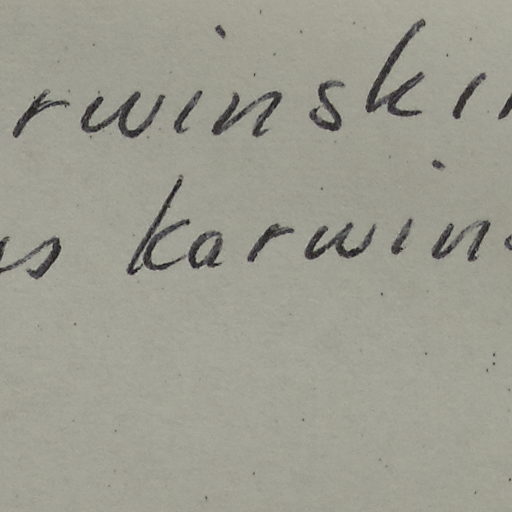 rwinski
us karwins